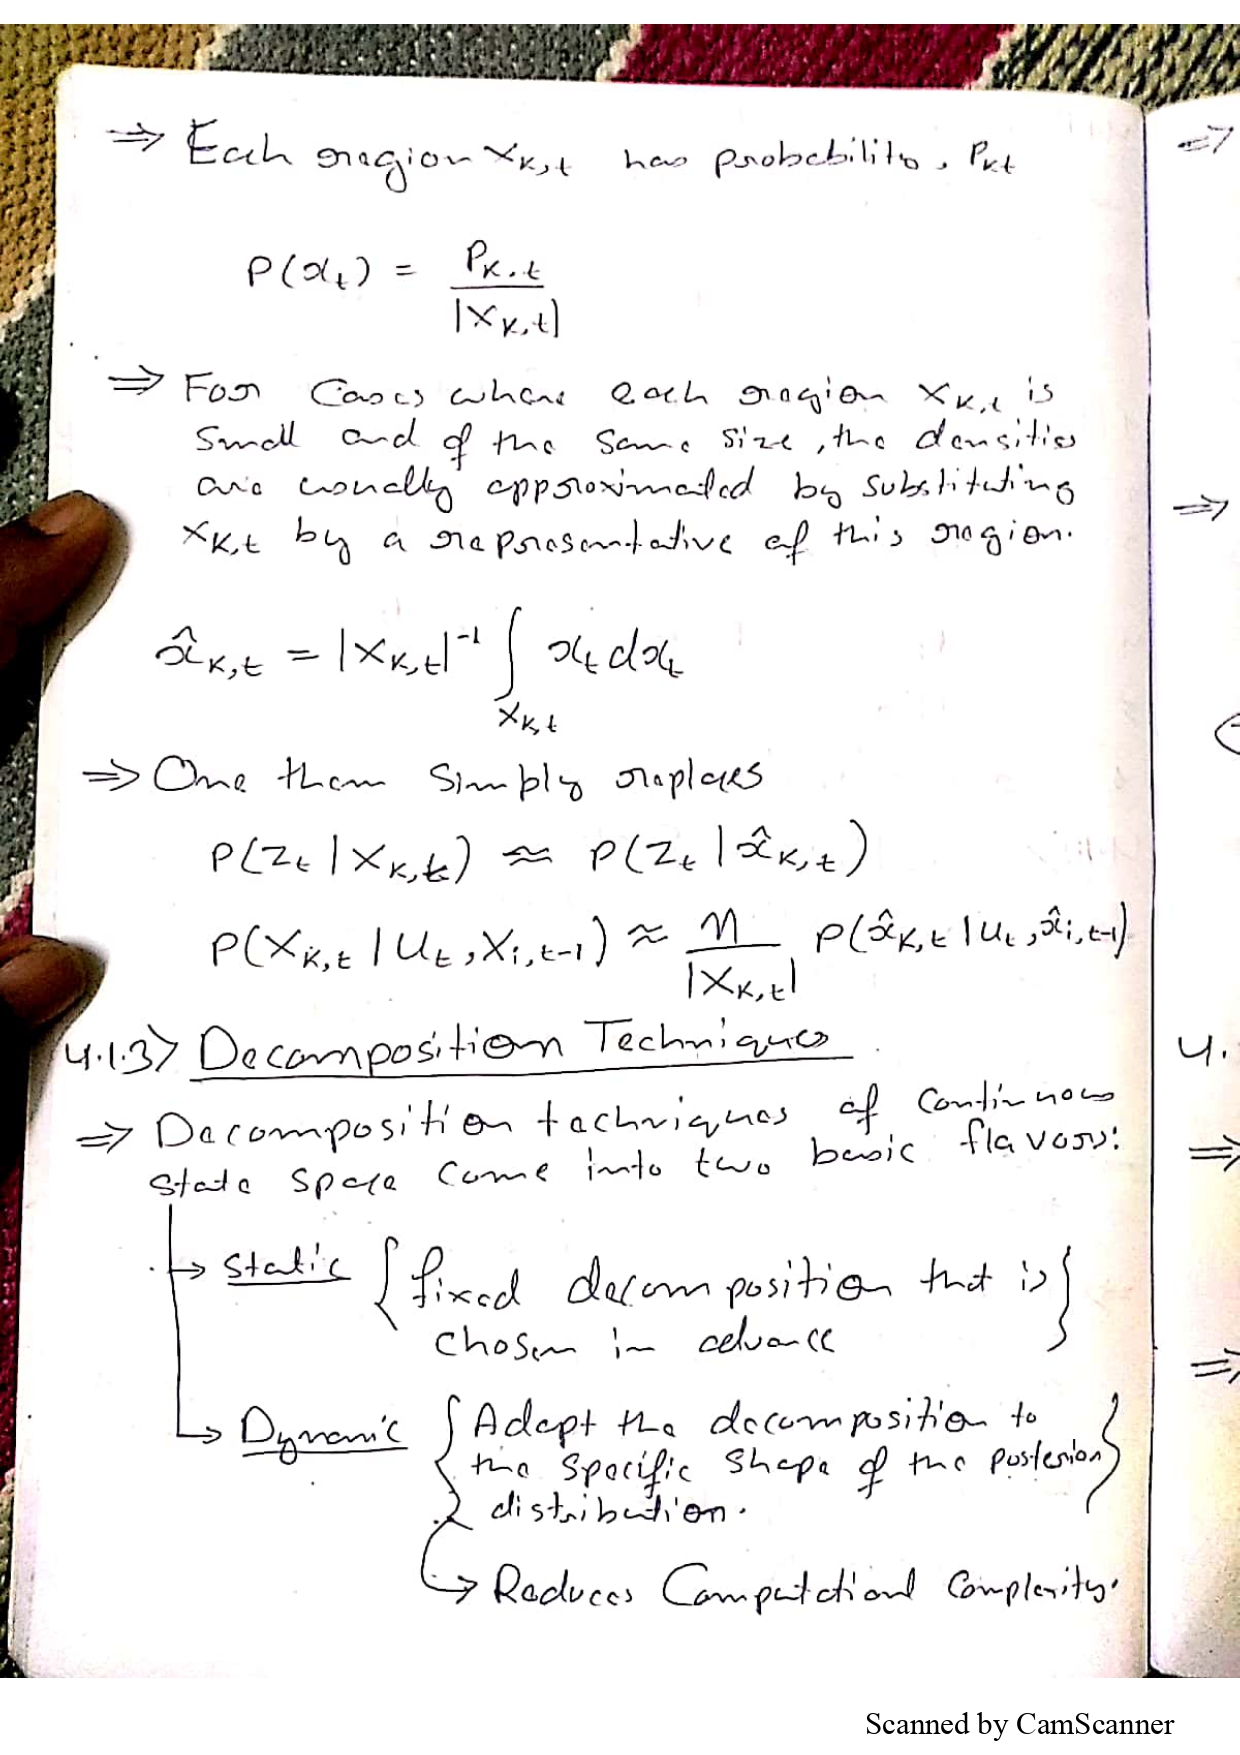 ⇒ Each region X_{k,t} has probability, P_{kt}
P(x_t) = P_{k,t} / |X_{k,t}|
⇒ For Cases where each region X_{k,t} is
small and of the same size, the densities
are usually approximated by substituting
X_{k,t} by a representative of this region.
x̂_{k,t} = |X_{k,t}|^{-1} ∫_{X_{k,t}} x_t dx_t
⇒ One them simply replaces
P(Z_t | X_{k,t}) ≈ P(Z_t | x̂_{k,t})
P(X_{k,t} | U_t, X_{i,t-1}) ≈ η / |X_{k,t}| P(x̂_{k,t} | U_t, x̂_{i,t-1})
4.1.3) Decomposition Techniques
⇒ Decomposition techniques of continuous
state space come into two basic flavors:
→ Static { fixed decomposition that is }
chosen in advance
→ Dynamic { Adapt the decomposition to
the specific shape of the posterior }
distribution.
→ Reduces Computational Complexity.
⇒
⇒
4.
⇒
⇒
Scanned by CamScanner